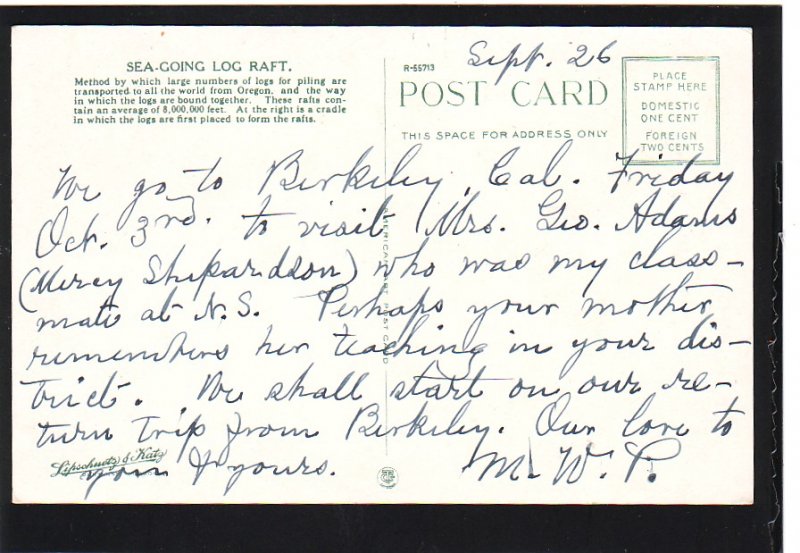 SEA-GOING LOG RAFT.
Method by which large numbers of logs for piling are
transported to all the world from Oregon, and the way
in which the logs are bound together. These rafts con-
tain an average of 8,000,000 feet. At the right is a cradle
in which the logs are first placed to form the rafts.
R-55713
POST CARD
THIS SPACE FOR ADDRESS ONLY
Sept. 26
PLACE
STAMP HERE
DOMESTIC
ONE CENT
FOREIGN
TWO CENTS
We go to Berkeley, Cal. Friday
Oct. 3rd. to visit Mrs. Geo. Adams
(Mercy Shepardson) who was my class-
mate at N.S. Perhaps your mother
remembers her teaching in your dis-
trict. We shall start on our re-
turn trip from Berkeley. Our love to
you & yours. M. W. P.
Lipschuetz & Katz
POST CARD